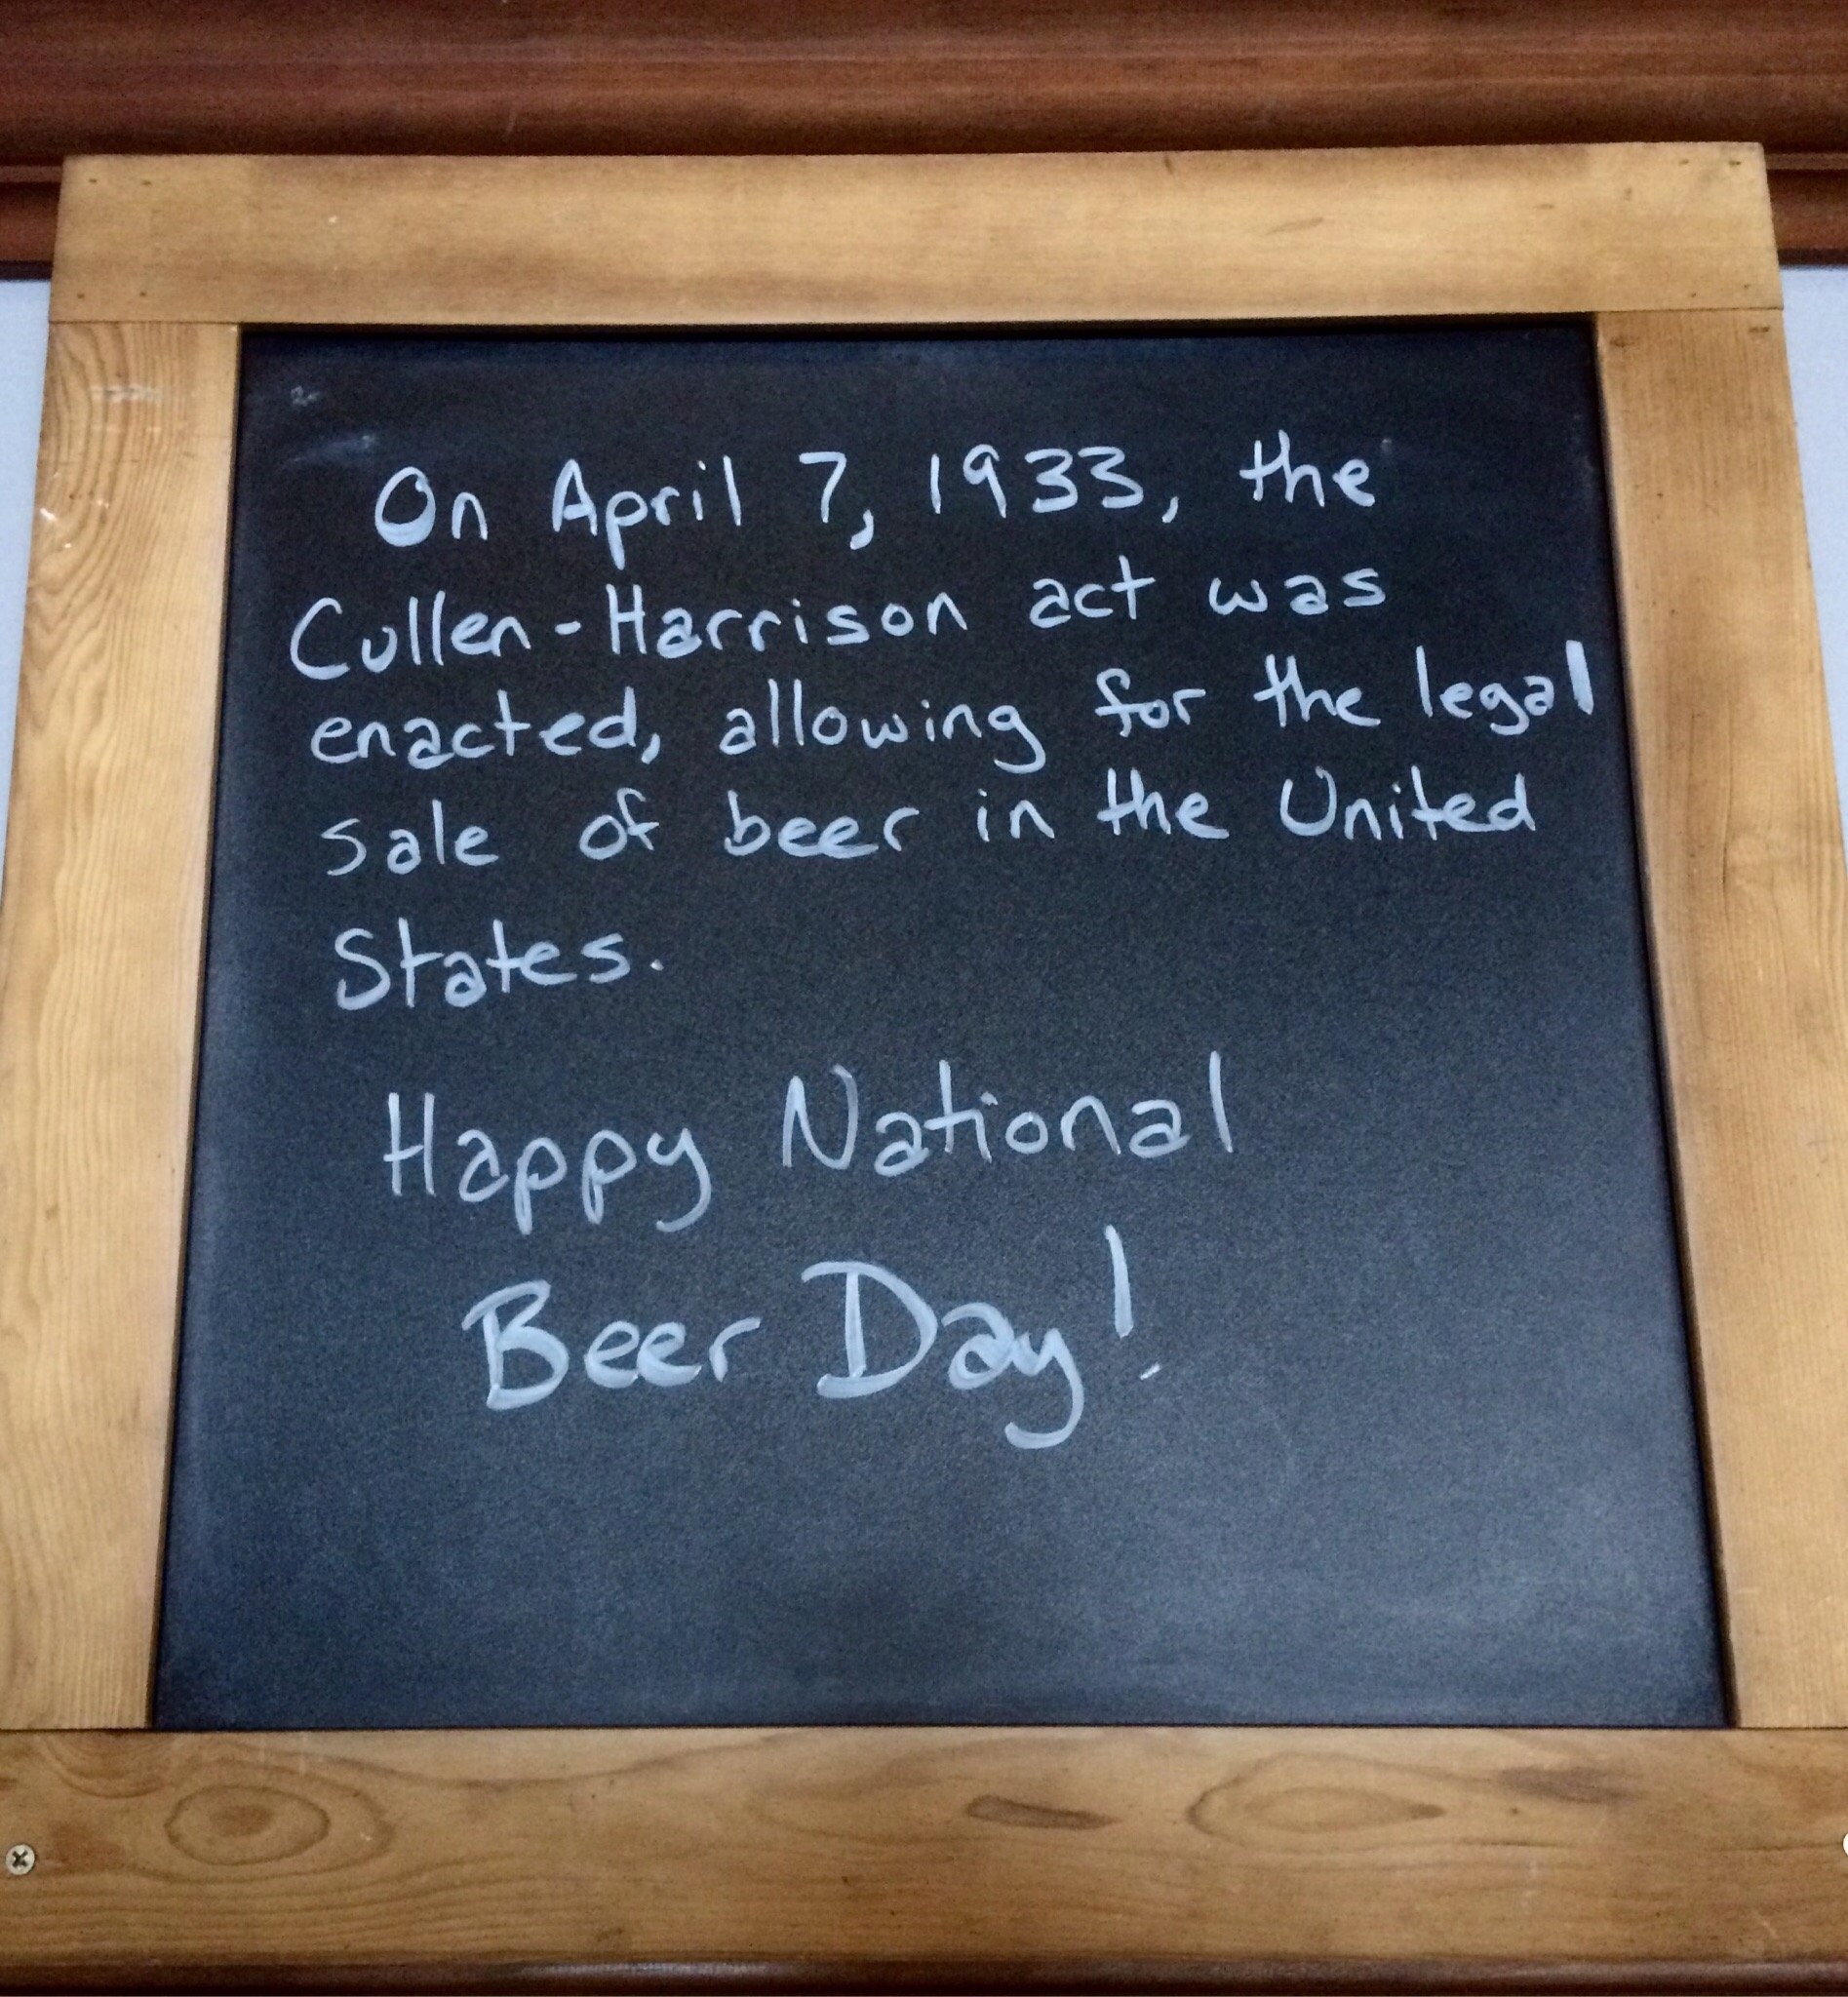 On April 7, 1933, the
Cullen-Harrison act was
enacted, allowing for the legal
sale of beer in the United
States.
Happy National
Beer Day!